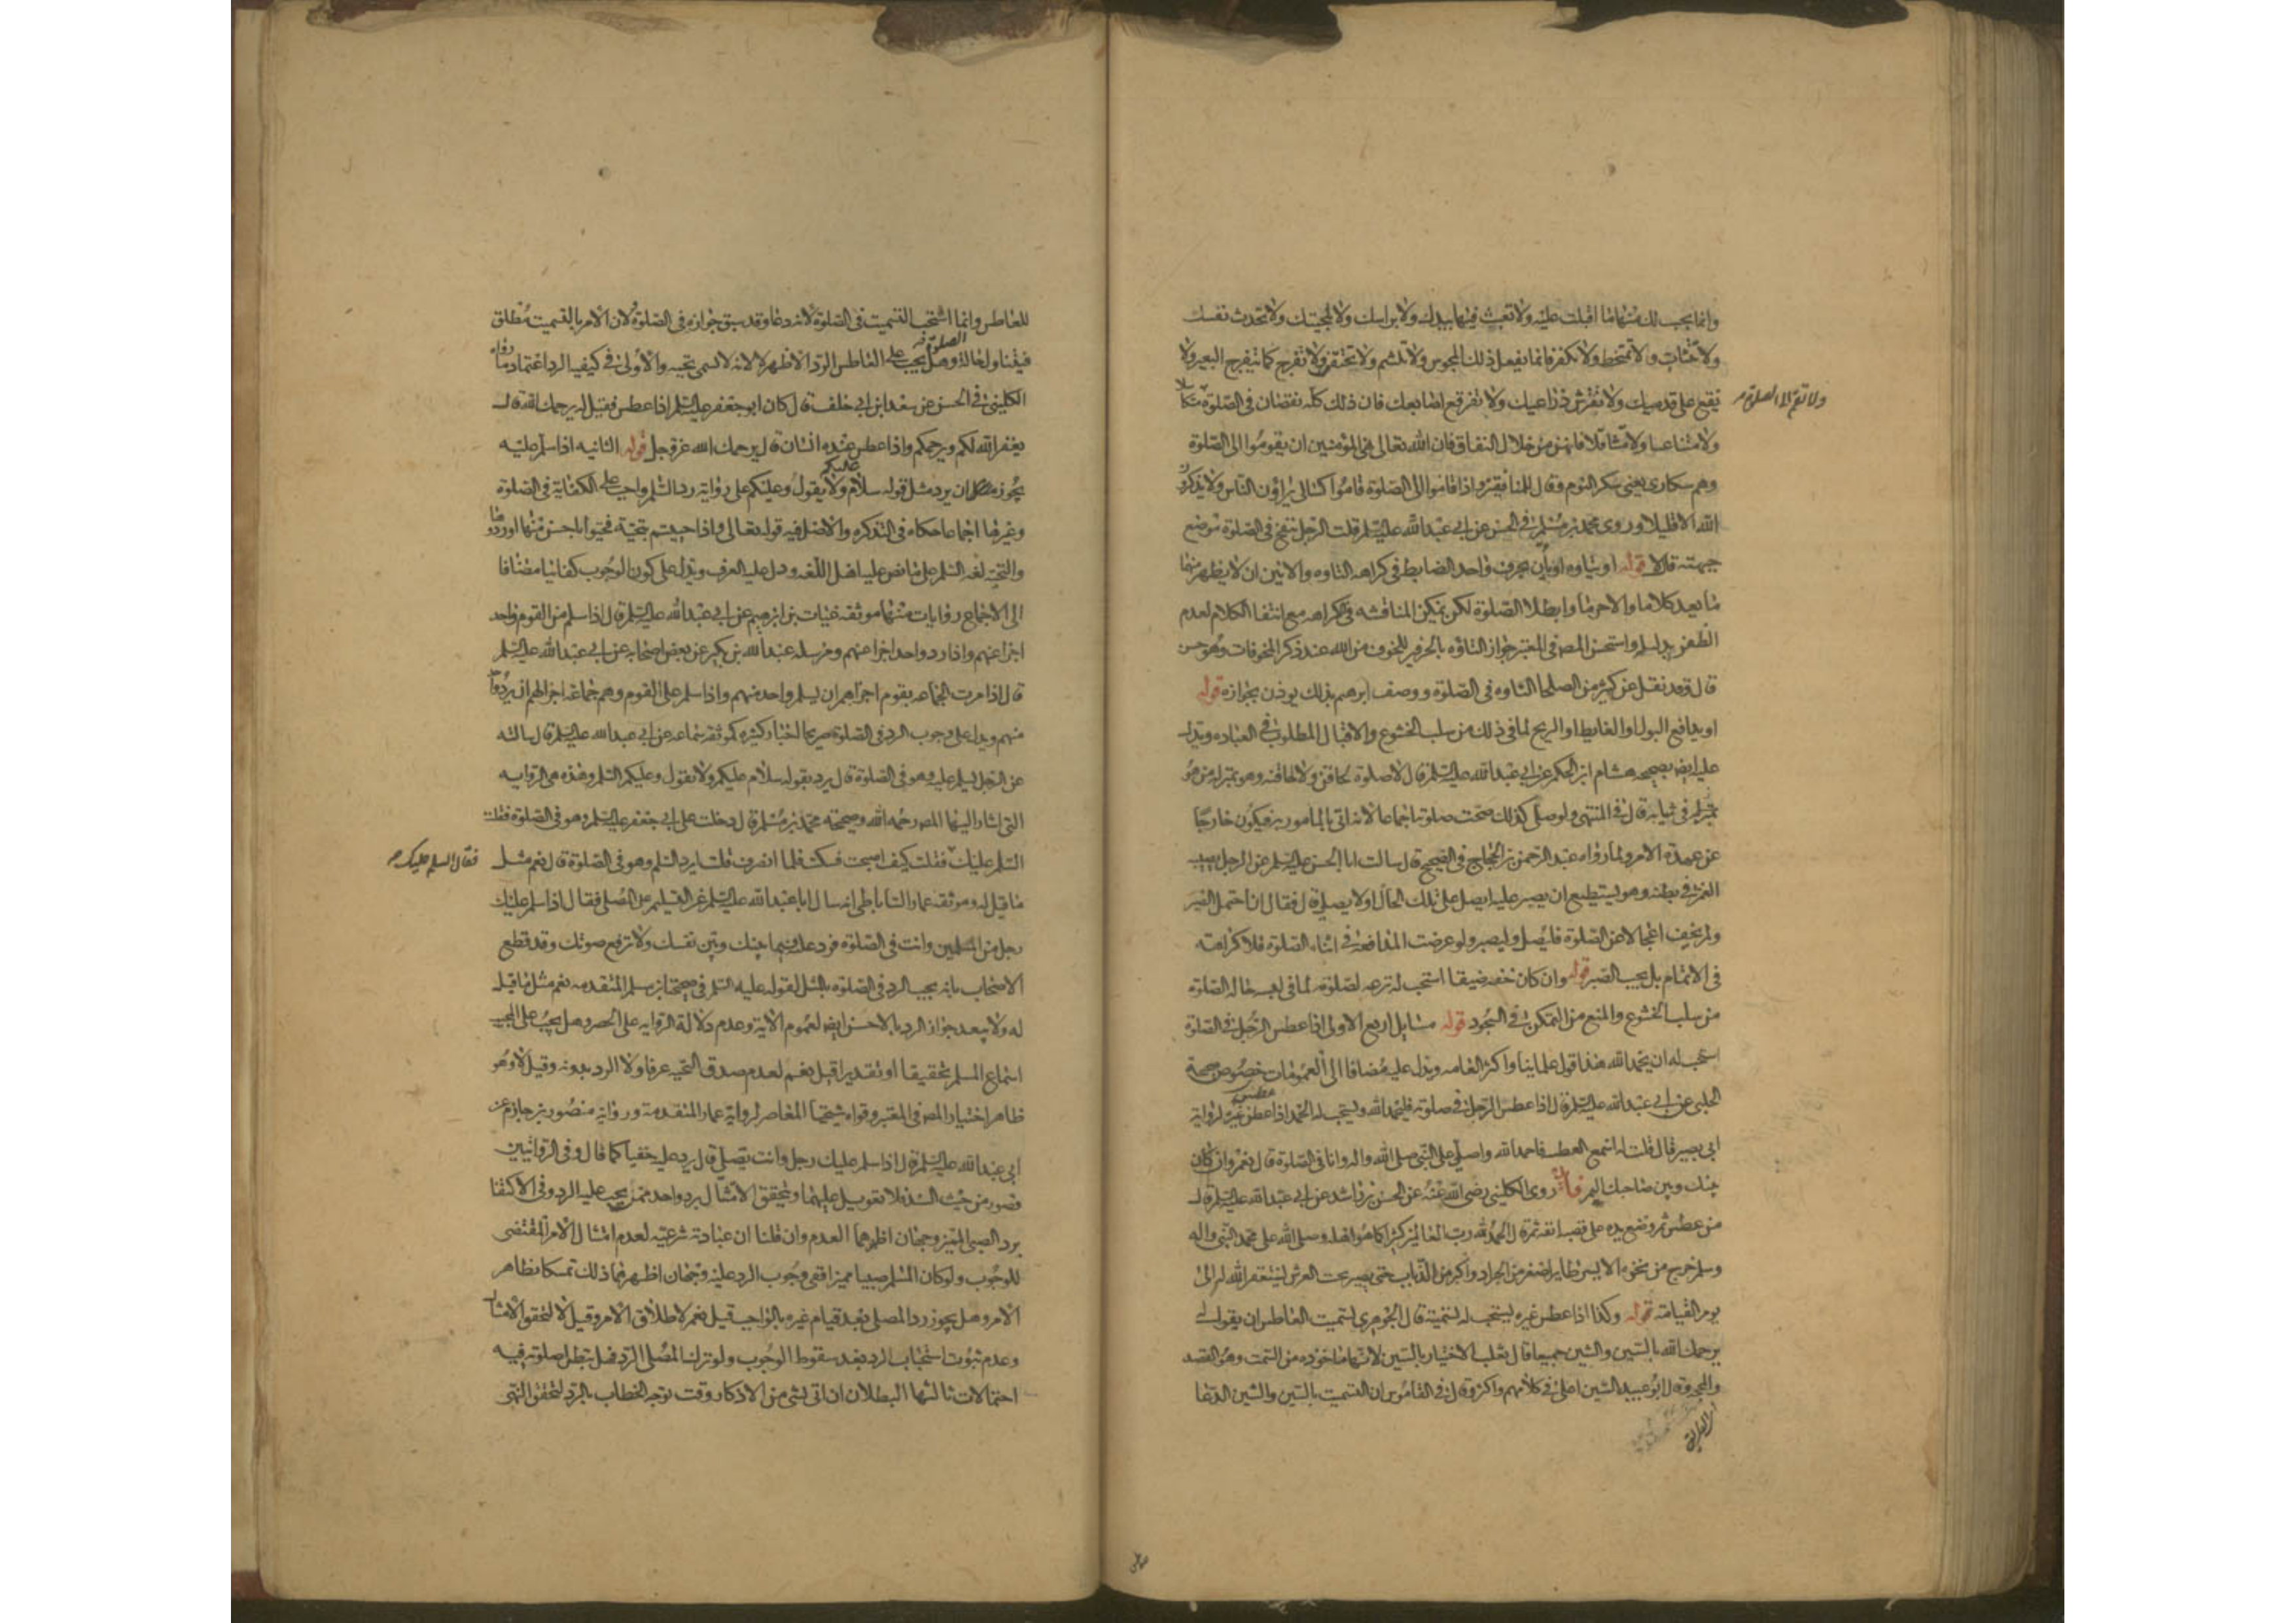 وانما يحسب لك منها ما اقبلت عليه ولا تعبث فيها بيدك ولا براسك ولا بلحيتك ولا تحدث نفسك
ولا تتثاب ولا تتمخط ولا تكفر فانما يفعل ذلك المجوس ولا تلثم ولا تحتقن ولا تفرج كما يتفرج البعير ولا
تقع على قدميك ولا تفترش ذراعيك ولا تفرقع اصابعك فان ذلك كله نقصان في الصلوة متكاسلا
ولا تقم الى الصلوة
ولا متناعسا ولا متثاقلا فانهن من خلال النفاق فان الله تعالى نهى المؤمنين ان يقوموا الى الصلوة
وهم سكارى يعني سكر النوم وقال للمنافقين واذا قاموا الى الصلوة قاموا كسالى يراؤن الناس ولا يذكرون
الله الا قليلا وروى محمد بن مسلم في الحسن عن ابي عبد الله عليه السلم قلت الرجل ينفخ في الصلوة موضع
جبهته قال لا قوله او يتاوه او يأن بحرف واحد الضابط في كراهه التاوه والانين ان لا يظهر منهما
ما يعد كلاما والا حرما وابطلا الصلوة لكن يمكن المناقشه في الكراهه مع انتفا الكلام لعدم
الظفر بدليله واستحسن المص في المعتبر جواز التاوه بالحرفين للخوف من الله عند ذكر المخوفات وهو حسن
قال وقد نقل عن كثير من الصلحا التاوه في الصلوة ووصف ابرهيم بذلك يوذن بجوازه قوله
او يدافع البول او الغايط او الريح لما في ذلك من سلب الخشوع والاقبال المطلوب في العباده ويدل
عليه ايضا صحيحه هشام ابن الحكم عن ابي عبد الله عليه السلم قال لا صلوة لحاقن ولا لحاقنه وهو بمنزله من هو
بمنزله في ثيابه قال في المنتهى ولو صلى كذلك صحت صلوته اجماعا لانه اتى بالمامور به فيكون خارجا
عن عهدة الامر ولما رواه عبد الرحمن بن الحجاج في الصحيح قال سالت ابا الحسن عليه السلم عن الرجل يصيبه
الغمز في بطنه وهو يستطيع ان يصبر عليه ايصلي على تلك الحال او لا يصلي قال فقال ان احتمل الصبر
ولم يخف اعجالا عن الصلوة فليصل وليصبر ولو عرضت المدافعة في اثناء الصلوة فلا كراهة
في الاتمام بل يجب الصبر قوله وان كان خفه ضيقا استحب له نزعه لصلوته لما في لبسه حاله الصلوة
من سلب الخشوع والمنع من التمكن في السجود قوله مسايل اربع الاولى اذا عطس الرجل في الصلوة
استحب له ان يحمد الله هذا قول علماينا واكثر العامه ويدل عليه مضافا الى العمومات خصوص صحيحة
الحلبي عن ابي عبد الله عليه السلم قال اذا عطس الرجل في صلوته فليحمد الله ويستحب له الحمد اذا عطس غيره لرواية
ابي بصير قال قلت له اسمع العطسه فاحمد الله واصلي على النبي صلى الله واله وانا في الصلوة قال نعم وان كان
بينك وبين صاحبك اليم فائدة روى الكليني رضى الله عنه عن الحسن بن راشد عن ابي عبد الله عليه السلم قال
من عطس ثم وضع يده على قصبه انفه ثم قال الحمد لله رب العالمين كثيرا كما هو اهله وصلى الله على محمد النبي واله
وسلم خرج من منخره الايسر طاير اصغر من الجراد واكبر من الذباب حتى يصير تحت العرش ليستغفر الله له الى
يوم القيامة قوله وكذا اذا عطس غيره يستحب له تسميته قال الجوهري تسميت العاطس ان يقول له
يرحمك الله بالسين والشين جميعا قال ثعلب الاختيار بالسين لانها ماخوذه من السمت وهو القصد
والمحجة وقال ابو عبيد الشين اعلى في كلامهم واكثر وقال في القاموس ان التسميت بالسين والشين الدعا
للعاطس وانما استحب التسميت في الصلوة لانه دعا وقد سبق جوازه في الصلوة ولان الامر بالتسميت مطلق
فيتناول حالة الصلوة وهل يجب على العاطس الرد الاظهر لا لانه لا يسمى تحيه والاولى في كيفيه الرد اعتماد ما رواه
الكليني في الحسن عن سعد ابن ابي خلف قال كان ابو جعفر عليه السلم اذا عطس فقيل له يرحمك الله قال
يغفر الله لكم ويرحمكم واذا عطس عنده انسان قال يرحمك الله عز وجل قوله الثانيه اذا سلم عليه
يجوز ان يرد مثل قوله سلام عليكم ولا يقول وعليكم على رواية رد السلم واجب على الكفاية في الصلوة
وغيرها اجماعا حكاه في التذكره والاصل فيه قوله تعالى واذا حييتم بتحية فحيوا باحسن منها او ردوها
والتحيه لغه السلم على ما نص عليه اهل اللغه ودل عليه العرف ويدل على كون الوجوب كفائيا مضافا
الى الاجماع روايات منها موثقه غياث بن ابرهيم عن ابي عبد الله عليه السلم قال اذا سلم من القوم واحد
اجزا عنهم واذا رد واحد اجزا عنهم ومرسله عبد الله بن بكير عن بعض اصحابه عن ابي عبد الله عليه السلم
قال اذا مرت الجماعه بقوم اجزاهم ان يسلم واحد منهم واذا سلم على القوم وهم جماعة اجزاهم ان يرد واحد
منهم ويدل على وجوب الرد في الصلوة صريحا اخبار كثيره كموثقه سماعه عن ابي عبد الله عليه السلم قال سالته
عن الرجل يسلم عليه وهو في الصلوة قال يرد بقوله سلام عليكم ولا يقول وعليكم السلم وهذه هي الروايه
التي اشار اليها المص رحمه الله وصحيحه محمد بن مسلم قال دخلت على ابي جعفر عليه السلم وهو في الصلوة فقلت
السلم عليك فقلت كيف اصبحت فسكت فلما انصرف قلت ايرد السلم وهو في الصلوة قال نعم مثل
فقال السلم عليك
ما قيل له وموثقه عمار الساباطي انه سال ابا عبد الله عليه السلم عن التسليم على المصلي فقال اذا سلم عليك
رجل من المسلمين وانت في الصلوة فرد عليه فيما بينك وبين نفسك ولا ترفع صوتك وقد قطع
الاصحاب بانه يجب الرد في الصلوة بالمثل لقوله عليه السلم في صحيحة ابن مسلم المتقدمه نعم مثل ما قيل
له ولا يبعد جواز الرد بالاحسن ايضا لعموم الاية وعدم دلالة الروايه على الحصر وهل يجب على المجيب
اسماع المسلم تحقيقا او تقديرا قيل نعم لعدم صدق التحيه عرفا ولا الرد بدونه وقيل لا وهو
ظاهر اختيار المص في المعتبر وقواه شيخنا المعاصر لرواية عمار المتقدمة ورواية منصور بن حازم عن
ابي عبد الله عليه السلم قال اذا سلم عليك رجل وانت تصلي قال ترد عليه خفيا كما قال وفي الروايتين
قصور من حيث السند فلا تعويل عليهما ويتحقق الامتثال برد واحد ممن يجب عليه الرد وفي الاكتفا
برد الصبي المميز وجهان اظهرهما العدم وان قلنا ان عبادته شرعيه لعدم امتثال الامر المقتضى
للوجوب ولو كان المسلم صبيا مميزا ففي وجوب الرد عليه وجهان اظهرهما ذلك تمسكا بظاهر
الامر وهل يجوز رد المصلي بعد قيام غيره بالواجب قيل نعم لاطلاق الامر وقيل لا لتحقق الامتثال
وعدم ثبوت استحباب الرد بعد سقوط الوجوب ولو ترك المصلي الرد فهل تبطل صلوته فيه
احتمالات ثالثها البطلان ان اتى بشئ من الاذكار وقت توجه الخطاب بالرد لتحقق النهى